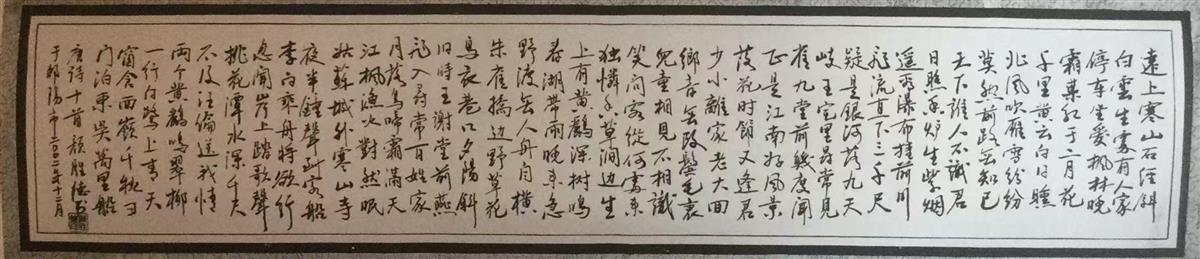 遠上寒山石径斜
白雲生處有人家
停车坐爱枫林晚
霜葉红于二月花
千里黄云白日曛
北风吹雁雪纷纷
莫愁前路无知己
天下谁人不識君
日照香炉生紫烟
遥看瀑布挂前川
飛流直下三千尺
疑是銀河落九天
岐王宅里尋常見
崔九堂前幾度闻
正是江南好风景
落花时節又逢君
少小離家老大回
鄉音无改鬢毛衰
兒童相見不相識
笑问客從何處来
独憐幽草涧边生
上有黄鹂深树鳴
春潮带雨晚来急
野渡无人舟自横
朱雀橋边野草花
烏衣巷口夕陽斜
旧時王謝堂前燕
飛入尋常百姓家
月落烏啼霜滿天
江枫漁火對愁眠
姑蘇城外寒山寺
夜半鐘聲到客船
李白乘舟将欲行
忽闻岸上踏歌聲
桃花潭水深千尺
不及汪倫送我情
两个黄鹂鳴翠柳
一行白鹭上青天
窗含西嶺千秋雪
门泊東吴萬里船
唐诗十首 颜胜德书
于邵陽市二〇〇二年十二月